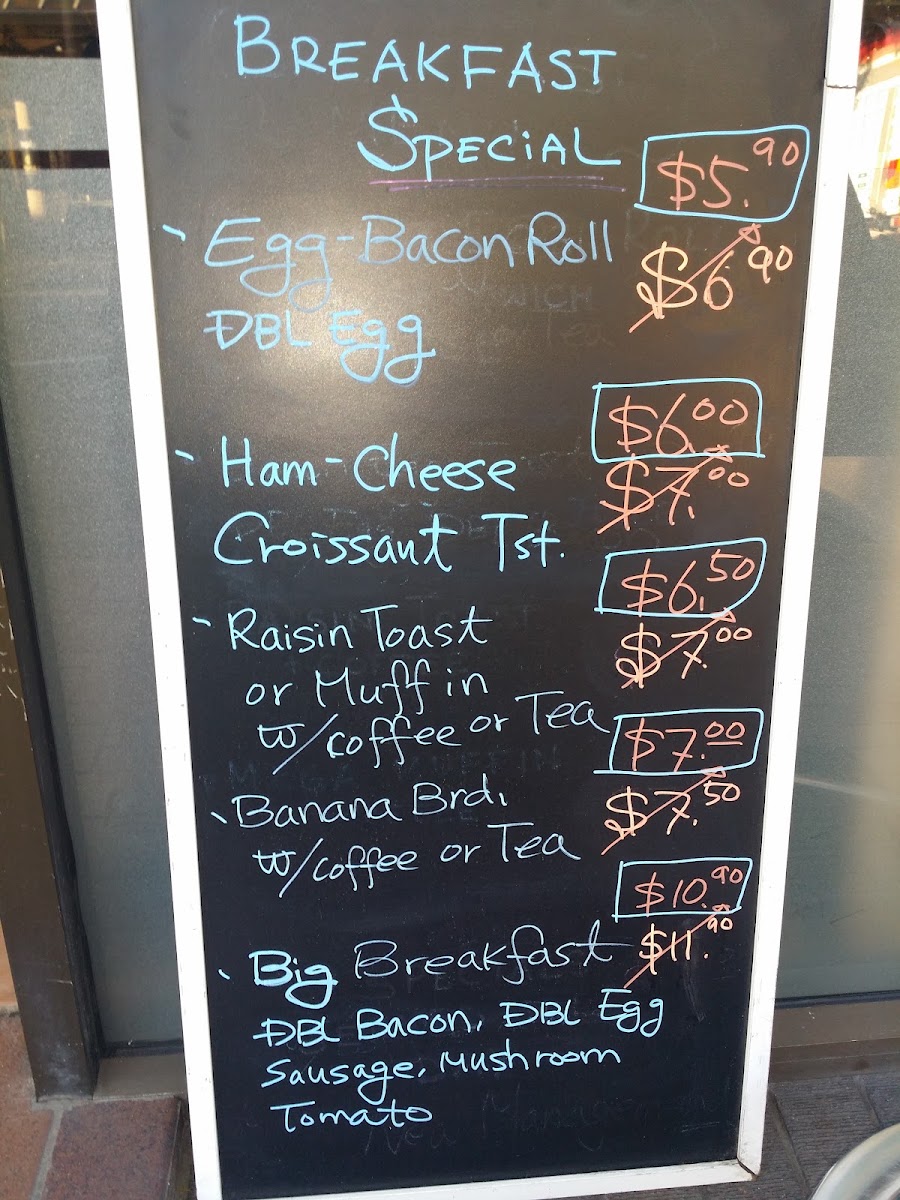 BREAKFAST
SPECIAL
$5.90
Egg-Bacon Roll
$6.90
DBL Egg
$6.00
Ham-Cheese
$7.00
Croissant Tst.
$6.50
Raisin Toast
$7.00
or Muffin
w/coffee or Tea
$7.00
Banana Brd.
$7.50
w/coffee or Tea
$10.90
Big Breakfast
$11.90
DBL Bacon, DBL Egg
Sausage, Mushroom
Tomato